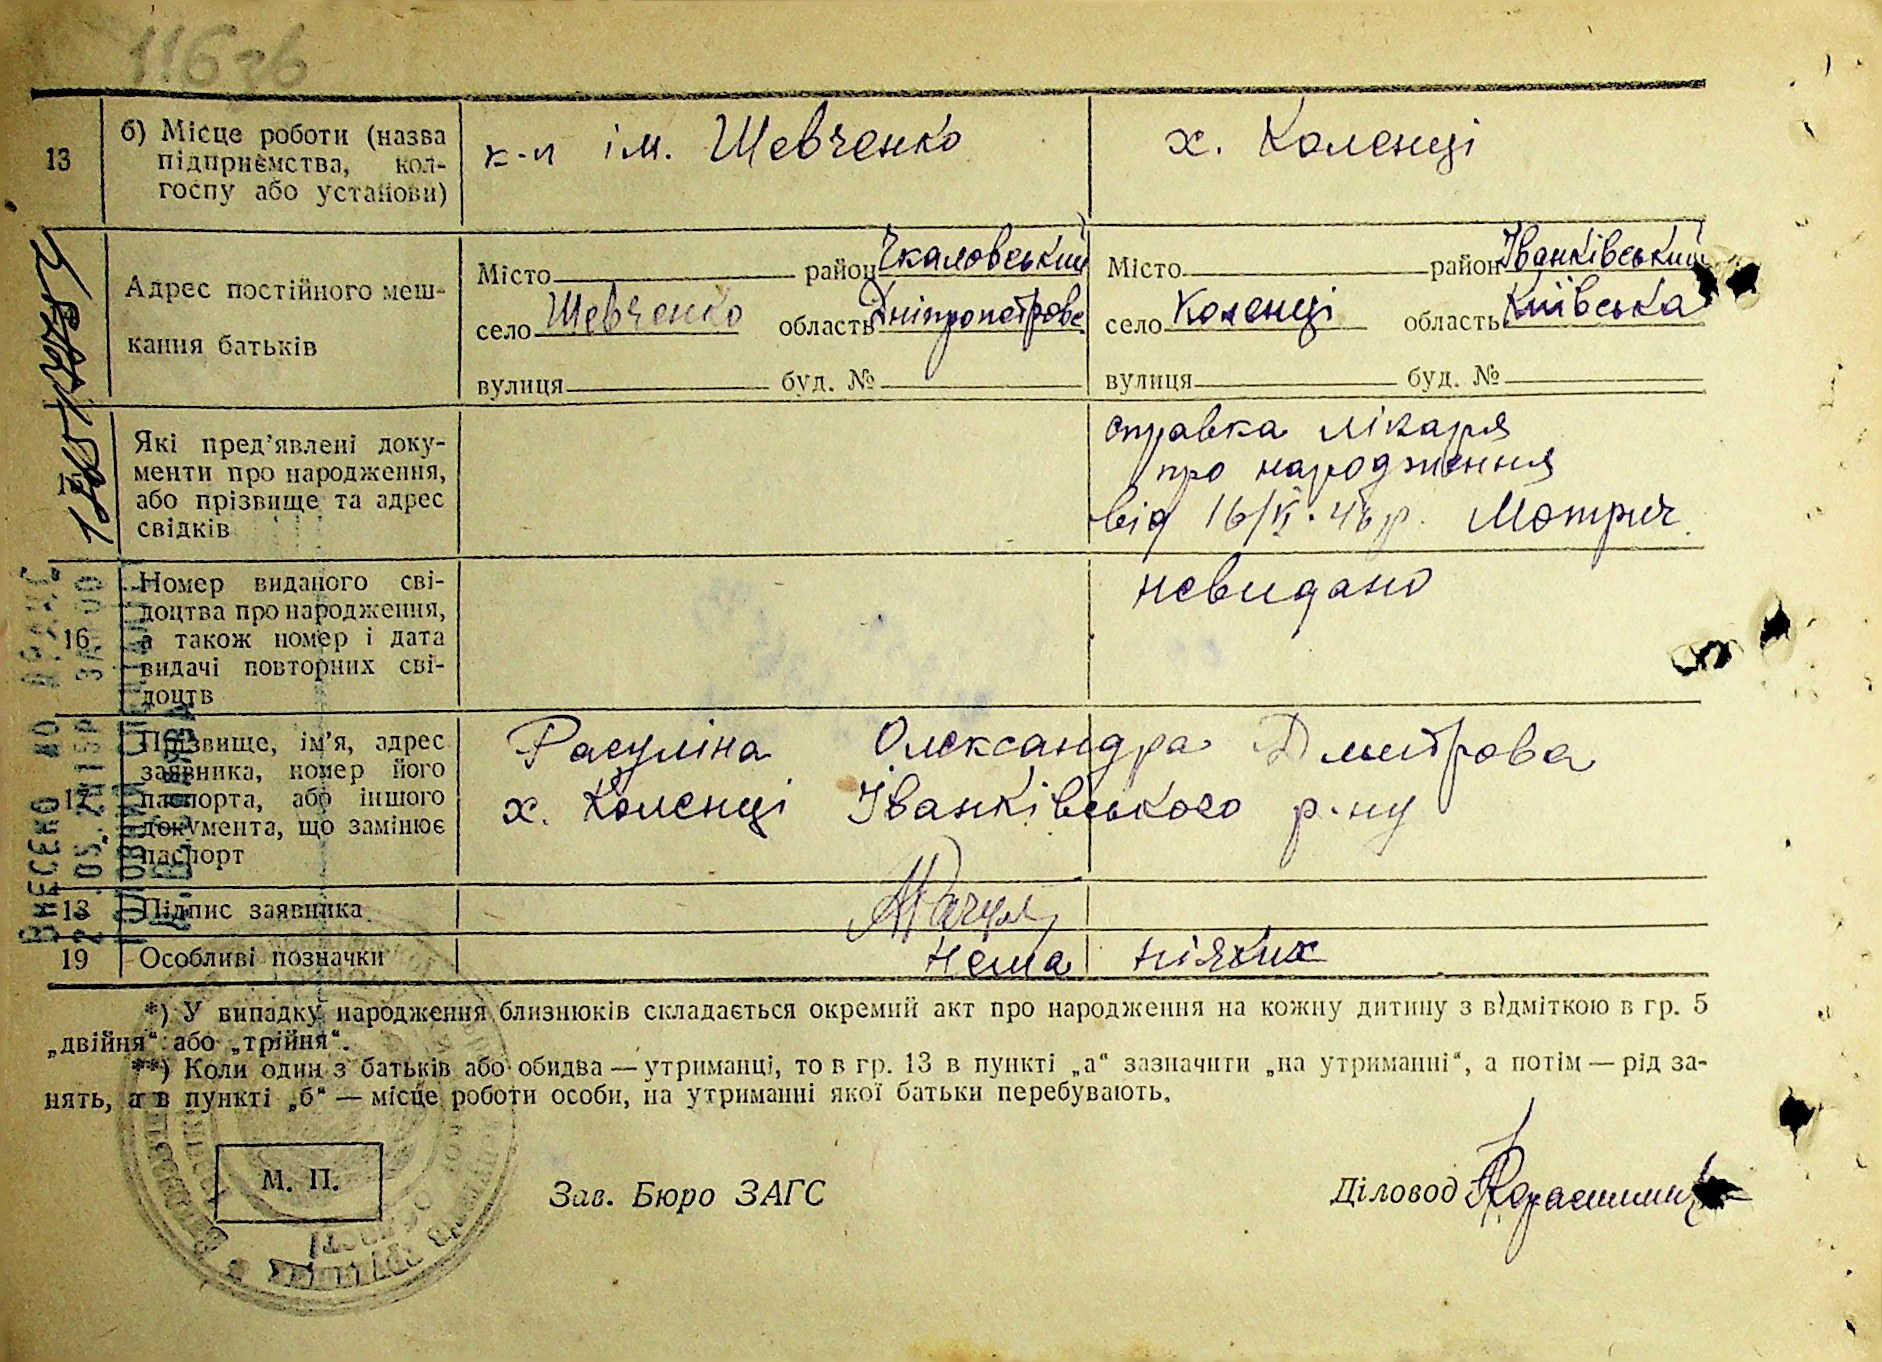 116 зв
13
б) Місце роботи (назва
підприємства, кол-
госпу або установи)
к-п ім. Шевченко
х. Коленці
Адрес постійного меш-
кання батьків
Місто район Чкаловський
село Шевченко область Дніпропетровс
вулиця буд. №
Місто район Іванківський
село Коленці область Київська
вулиця буд. №
Які пред'явлені доку-
менти про народження,
або прізвище та адрес
свідків
справка лікаря
про народження
від 16/VI. 46 р. Мотрич
16
Номер виданого сві-
доцтва про народження,
а також номер і дата
видачі повторних сві-
доцтв
невидано
17
Прізвище, ім'я, адрес
заявника, номер його
паспорта, або іншого
документа, що замінює
паспорт
Расуліна Олександра Дмитрова
х. Коленці Іванківського р-ну
18
Підпис заявника
19
Особливі позначки
Нема ніяких
*) У випадку народження близнюків складається окремий акт про народження на кожну дитину з відміткою в гр. 5
„двійня“ або „трійня“.
**) Коли один з батьків або обидва — утриманці, то в гр. 13 в пункті „а“ зазначити „на утриманні“, а потім — рід за-
нять, а в пункті „б“ — місце роботи особи, на утриманні якої батьки перебувають.
М. П.
Зав. Бюро ЗАГС
Діловод
ВНЕСЕНО ДО